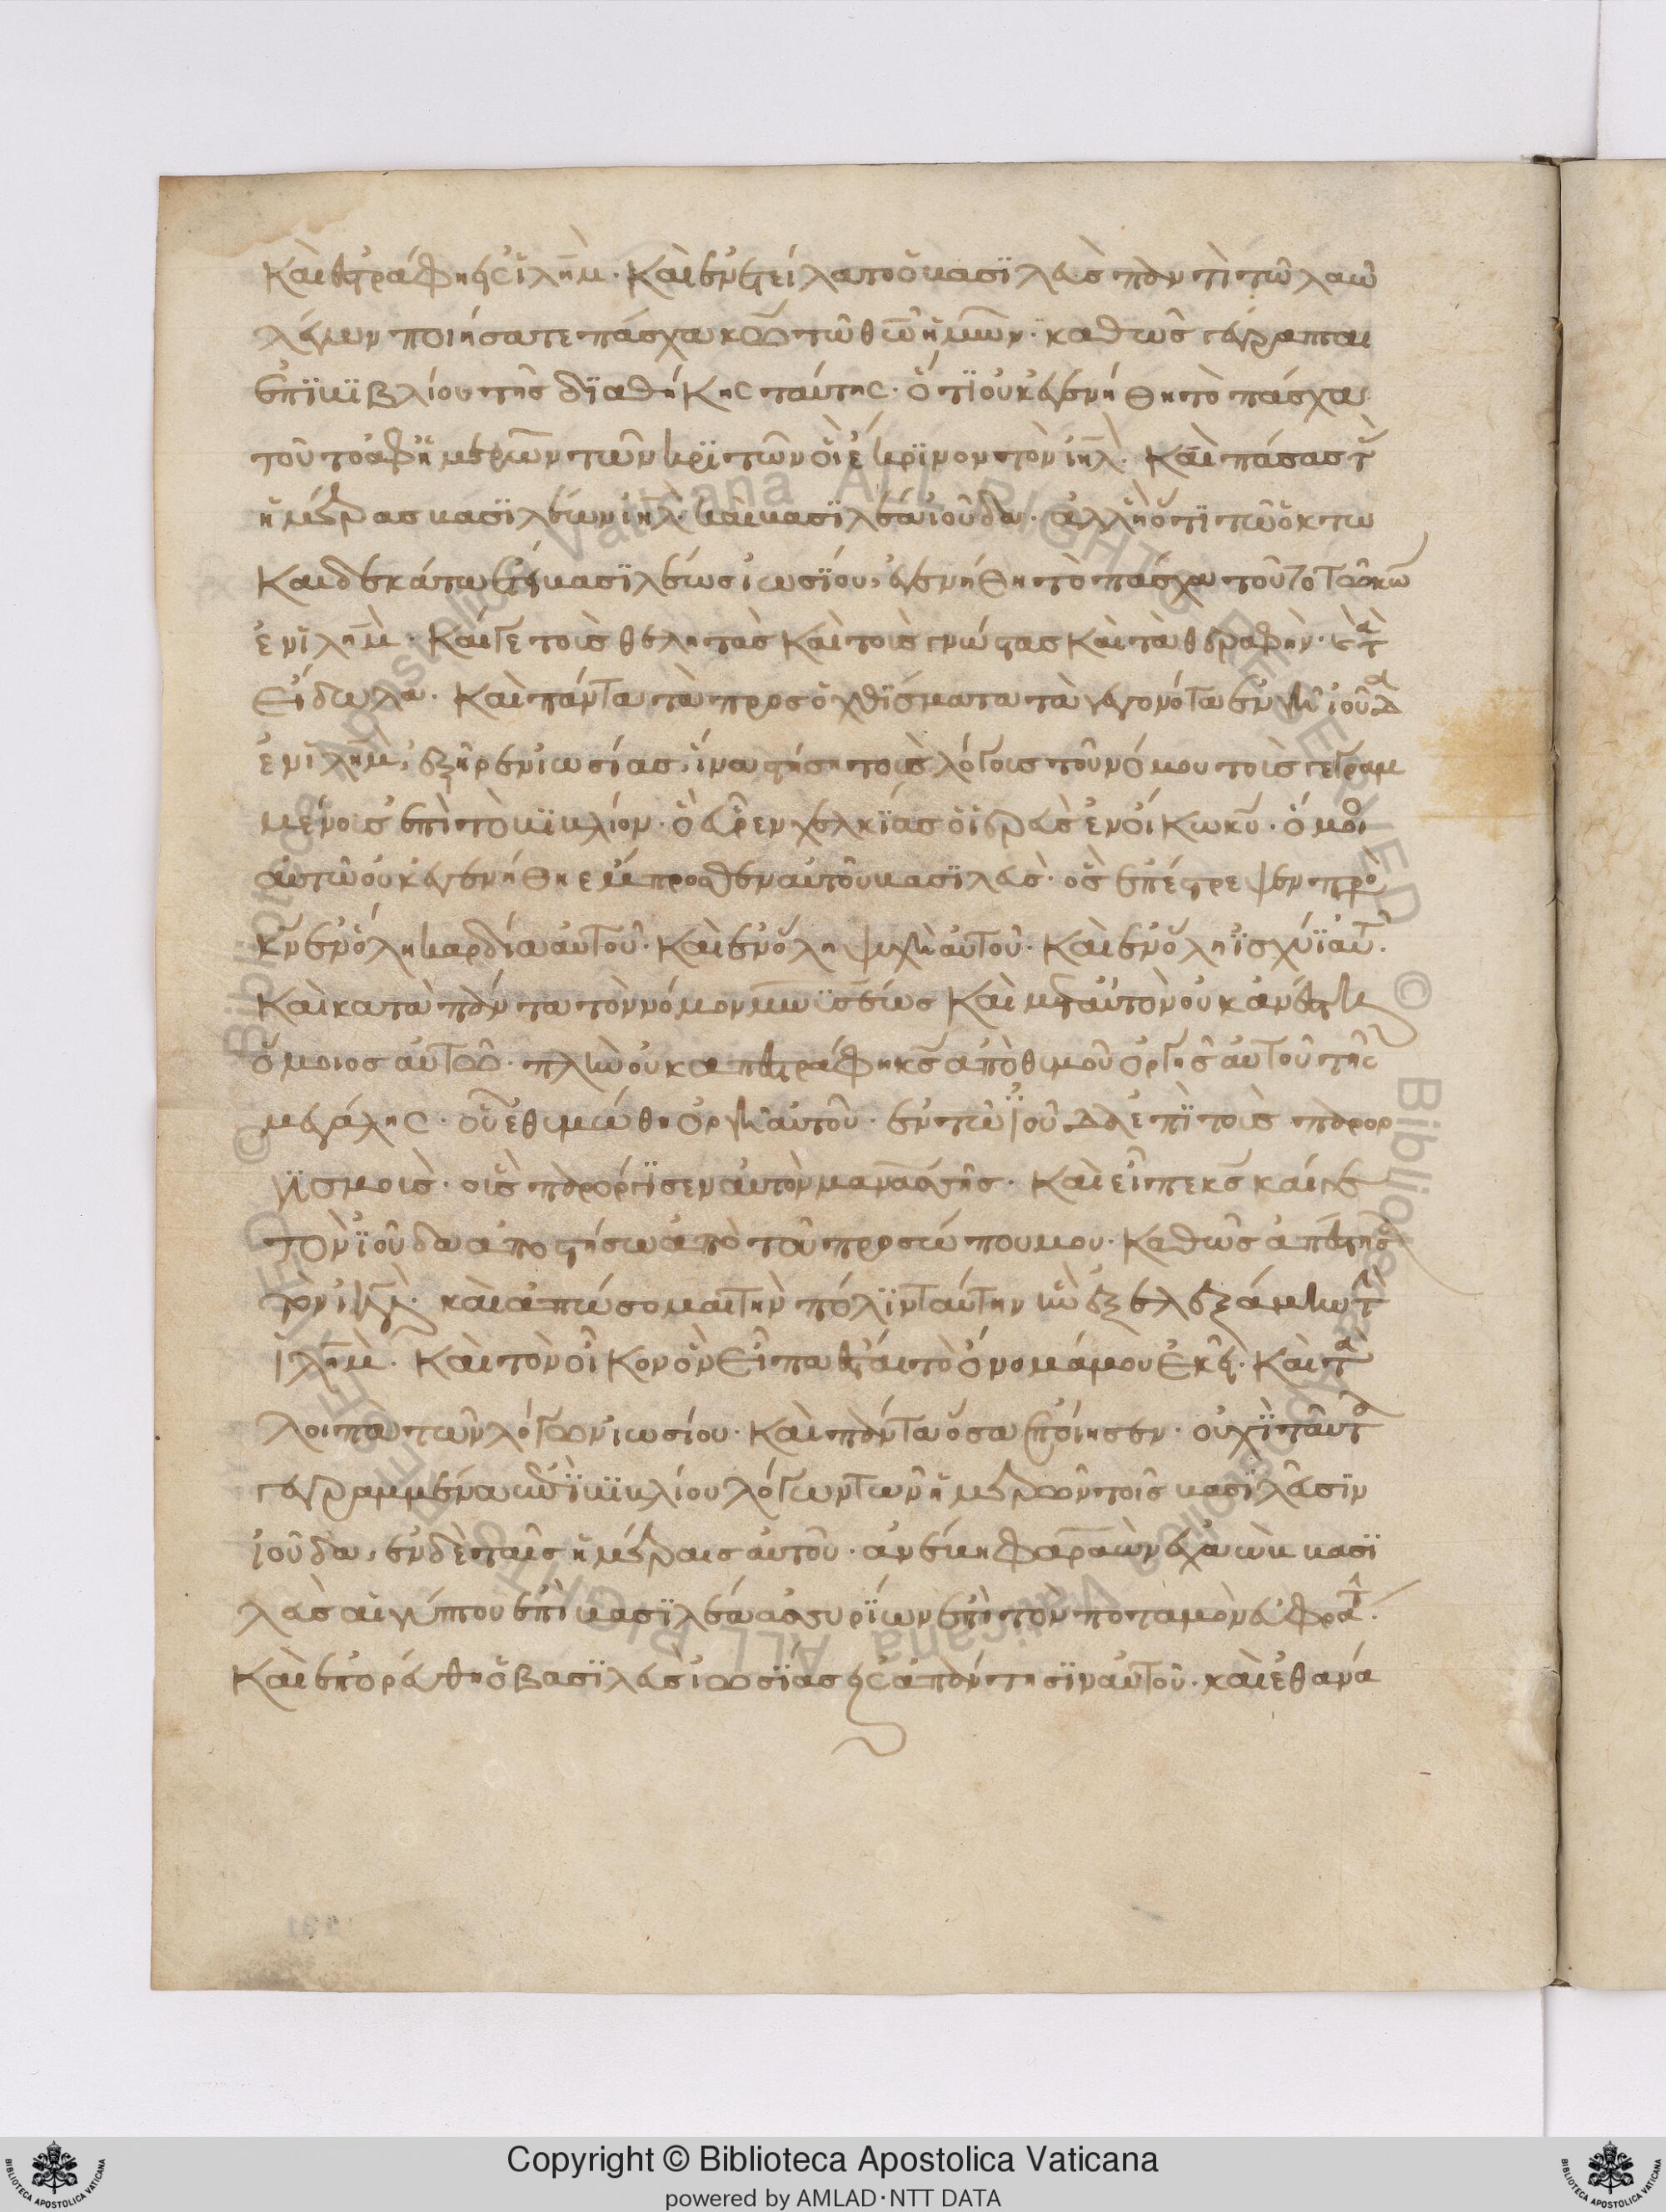 καὶ ἐστράφη εἰς ἰλῆμ· καὶ ἐνετείλατο ὁ βασϊλεὺς πὰντὶ τῶ λαῶ
λέγων ποιήσατε πάσχα κῶ τῶ θῶ ἡμῶν· καθὼς γέγραπται
ἐπϊ βϊβλίου τῆς δϊαθήκης ταύτης· ὅτϊ οὐκ ἐγενήθη τὸ πάσχα
τοῦτο ἀφ ἡμερῶν τῶν κρϊτῶν οἳ ἔκρϊνον τὸν ἰῆλ· καὶ πάσας τ
ἡμέρας βασϊλέων ἰῆλ· καὶ βασϊλέω ἰούδα· ἀλλ ἢ ὅτϊ τῶ ὀκτω
καιδεκάτω ἔτει βασϊλέως ἰωσίου, ἐγενήθη τὸ πάσχα τοῦτο τῶ κῶ
ἐν ἰλὴμ· καί γε τοὺς θελητὰς καὶ τοὺς γνώστας καὶ τὰ θεραφὴν· καὶ τὰ
εἴδωλα· καὶ πάντα τὰ προσοχθίσματα τὰ γεγονότα ἐν γῆ ἰούδα
ἐν ἰλὴμ, ἐξῆρεν ἰωσίας, ἵνα στήση τοὺς λόγους τοῦ νόμου τοὺς γεγραμ
μένους ἐπὶ τὸ βϊβλίον· ὃ εὗρεν χελκίας ὁ ἱερεὺς ἐν οἴκω κυ· ὅμοιο
αὐτῶ οὐκ ἐγενήθη ἔμπροσθεν αὐτοῦ βασϊλεὺς· ὃς ἐπέστρεψεν πρὸ
κν ἐν ὅλη καρδία αὐτοῦ· καὶ ἐν ὅλη ψυχῆ αὐτοῦ· καὶ ἐν ὅλη ἰσχύϊ αὐτ·
καὶ κατὰ πάντα τὸν νόμον μωϋσέως καὶ μετ αὐτὸν οὐκ ἀνέστη
ὅμοιος αὐτῶ· πλὴν οὐκ ἀπεστράφη κς ἀπὸ θυμοῦ ὀργῆς αὐτοῦ τῆς
μεγάλης· οὗ ἐθυμώθη ὀργῆ αὐτοῦ· ἐν τῶ ἰούδα ἐπὶ τοὺς παροργ
γισμοὺς· οὓς παρόργϊσεν αὐτὸν μανασσῆς· καὶ εἶπε κς καί γε
τὸν ἰούδα ἀποστήσω ἀπὸ τοῦ προσώπου μου· καθὼς ἀπέστησ
τὸν ἰῆλ· καὶ ἀπώσομαι τὴν πόλϊν ταύτην ἣν ἐξελεξάμην τὴν
ἰλὴμ· καὶ τὸν οἶκον ὃν εἶπα ἔσται τὸ ὄνομά μου ἐκεῖ· καὶ τὰ
λοιπὰ τῶν λόγων ἰωσίου· καὶ πάντα ὅσα ἐποίησεν· οὐχὶ ταῦτα
γεγραμμένα ἐπὶ βϊβλίου λόγων τῶν ἡμερῶν τοῖς βασϊλεῦσϊν
ἰούδα, ἐν δὲ ταῖς ἡμέραις αὐτοῦ· ἀνέβη φαραὼ νεχαὼ βασϊ
λεὺς αἰγύπτου ἐπὶ βασϊλέα ἀσσυρίων ἐπὶ τὸν ποταμὸν εὐφρατ·
καὶ ἐπορεύθη ὁ βασϊλεὺς ἰωσϊας εἰς ἀπάντησϊν αὐτοῦ· καὶ ἐθανά
Copyright © Biblioteca Apostolica Vaticana
powered by AMLAD·NTT DATA